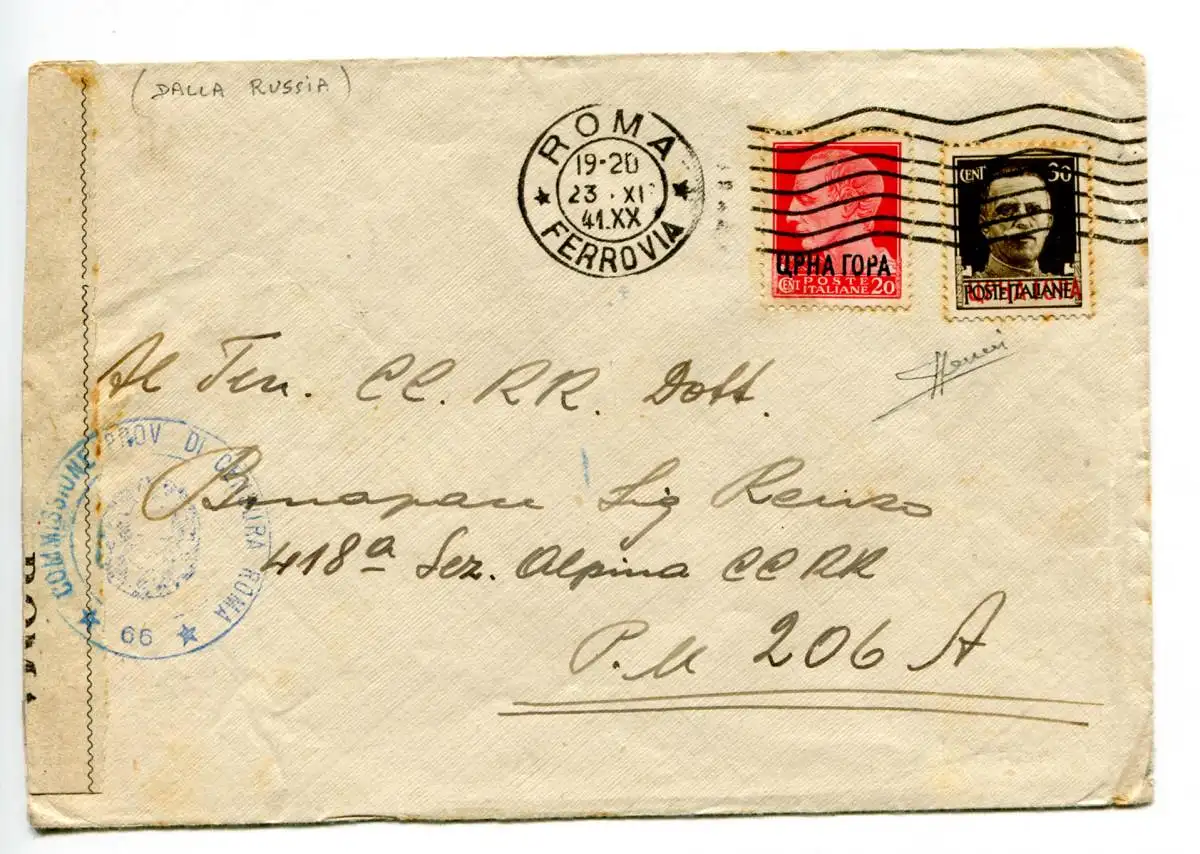 (DALLA RUSSIA)
ROMA
19-20
23 . XI
41.XX
FERROVIA
ЦРНА ГОРА
CENT POSTE ITALIANE 20
CENT
POSTE ITALIANE
Al Ten. CC. RR. Dott.
Sig Renzo
418ª Sez. Alpina CC RR
P.M 206 A
COMMISSIONE PROV DI CENSURA ROMA
66